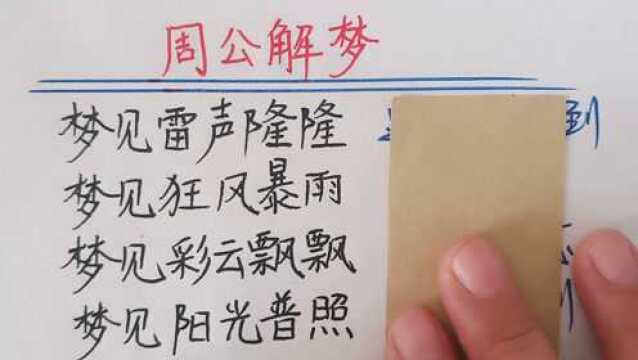 周公解梦
梦见雷声隆隆 到
梦见狂风暴雨
梦见彩云飘飘
梦见阳光普照